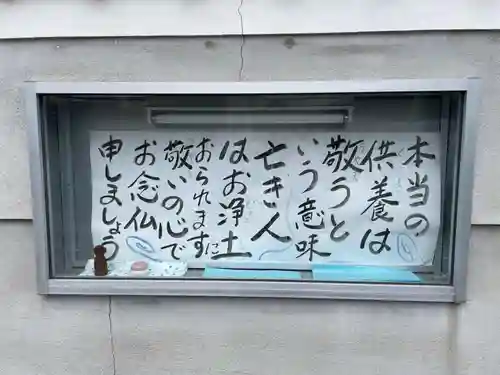 本当の
供養は
敬うと
いう意味
亡き人
はお浄土に
おられます
敬いの心で
お念仏
申しましょう